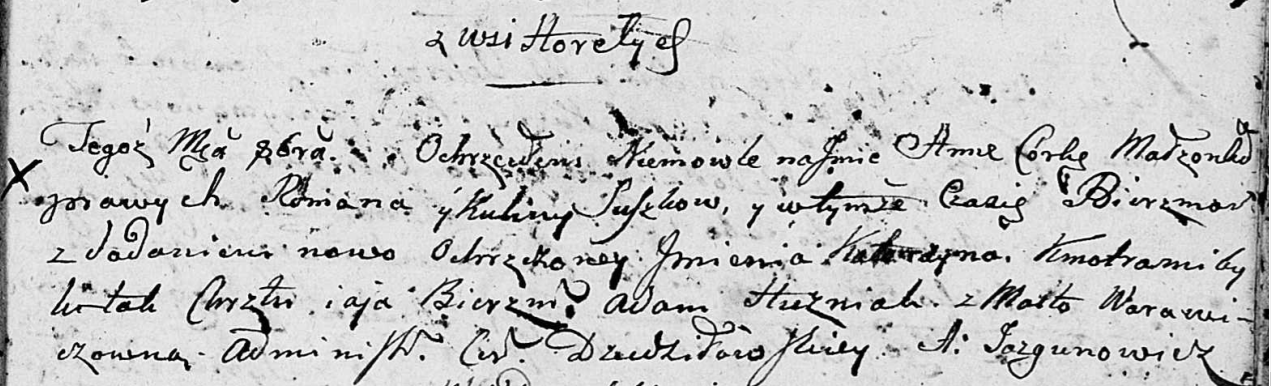 z wsi Horełych
Tegoż Mca 8bra. Ochrzciłem Niemowle na Jmie Anne Córkę Małżonków
prawych Romana y Kuliny Suszkow, y w tymże Czasie Bierzmow
z dodaniem nowo Ochrzczoney Jmienia Katarzyna. Kmotrami by
li tak Chrztu iaja Bierzm. Adam Huzniak z Warawi-
czowną. Administr. Cer. Dziedziłowskiey A. Jazgunowicz